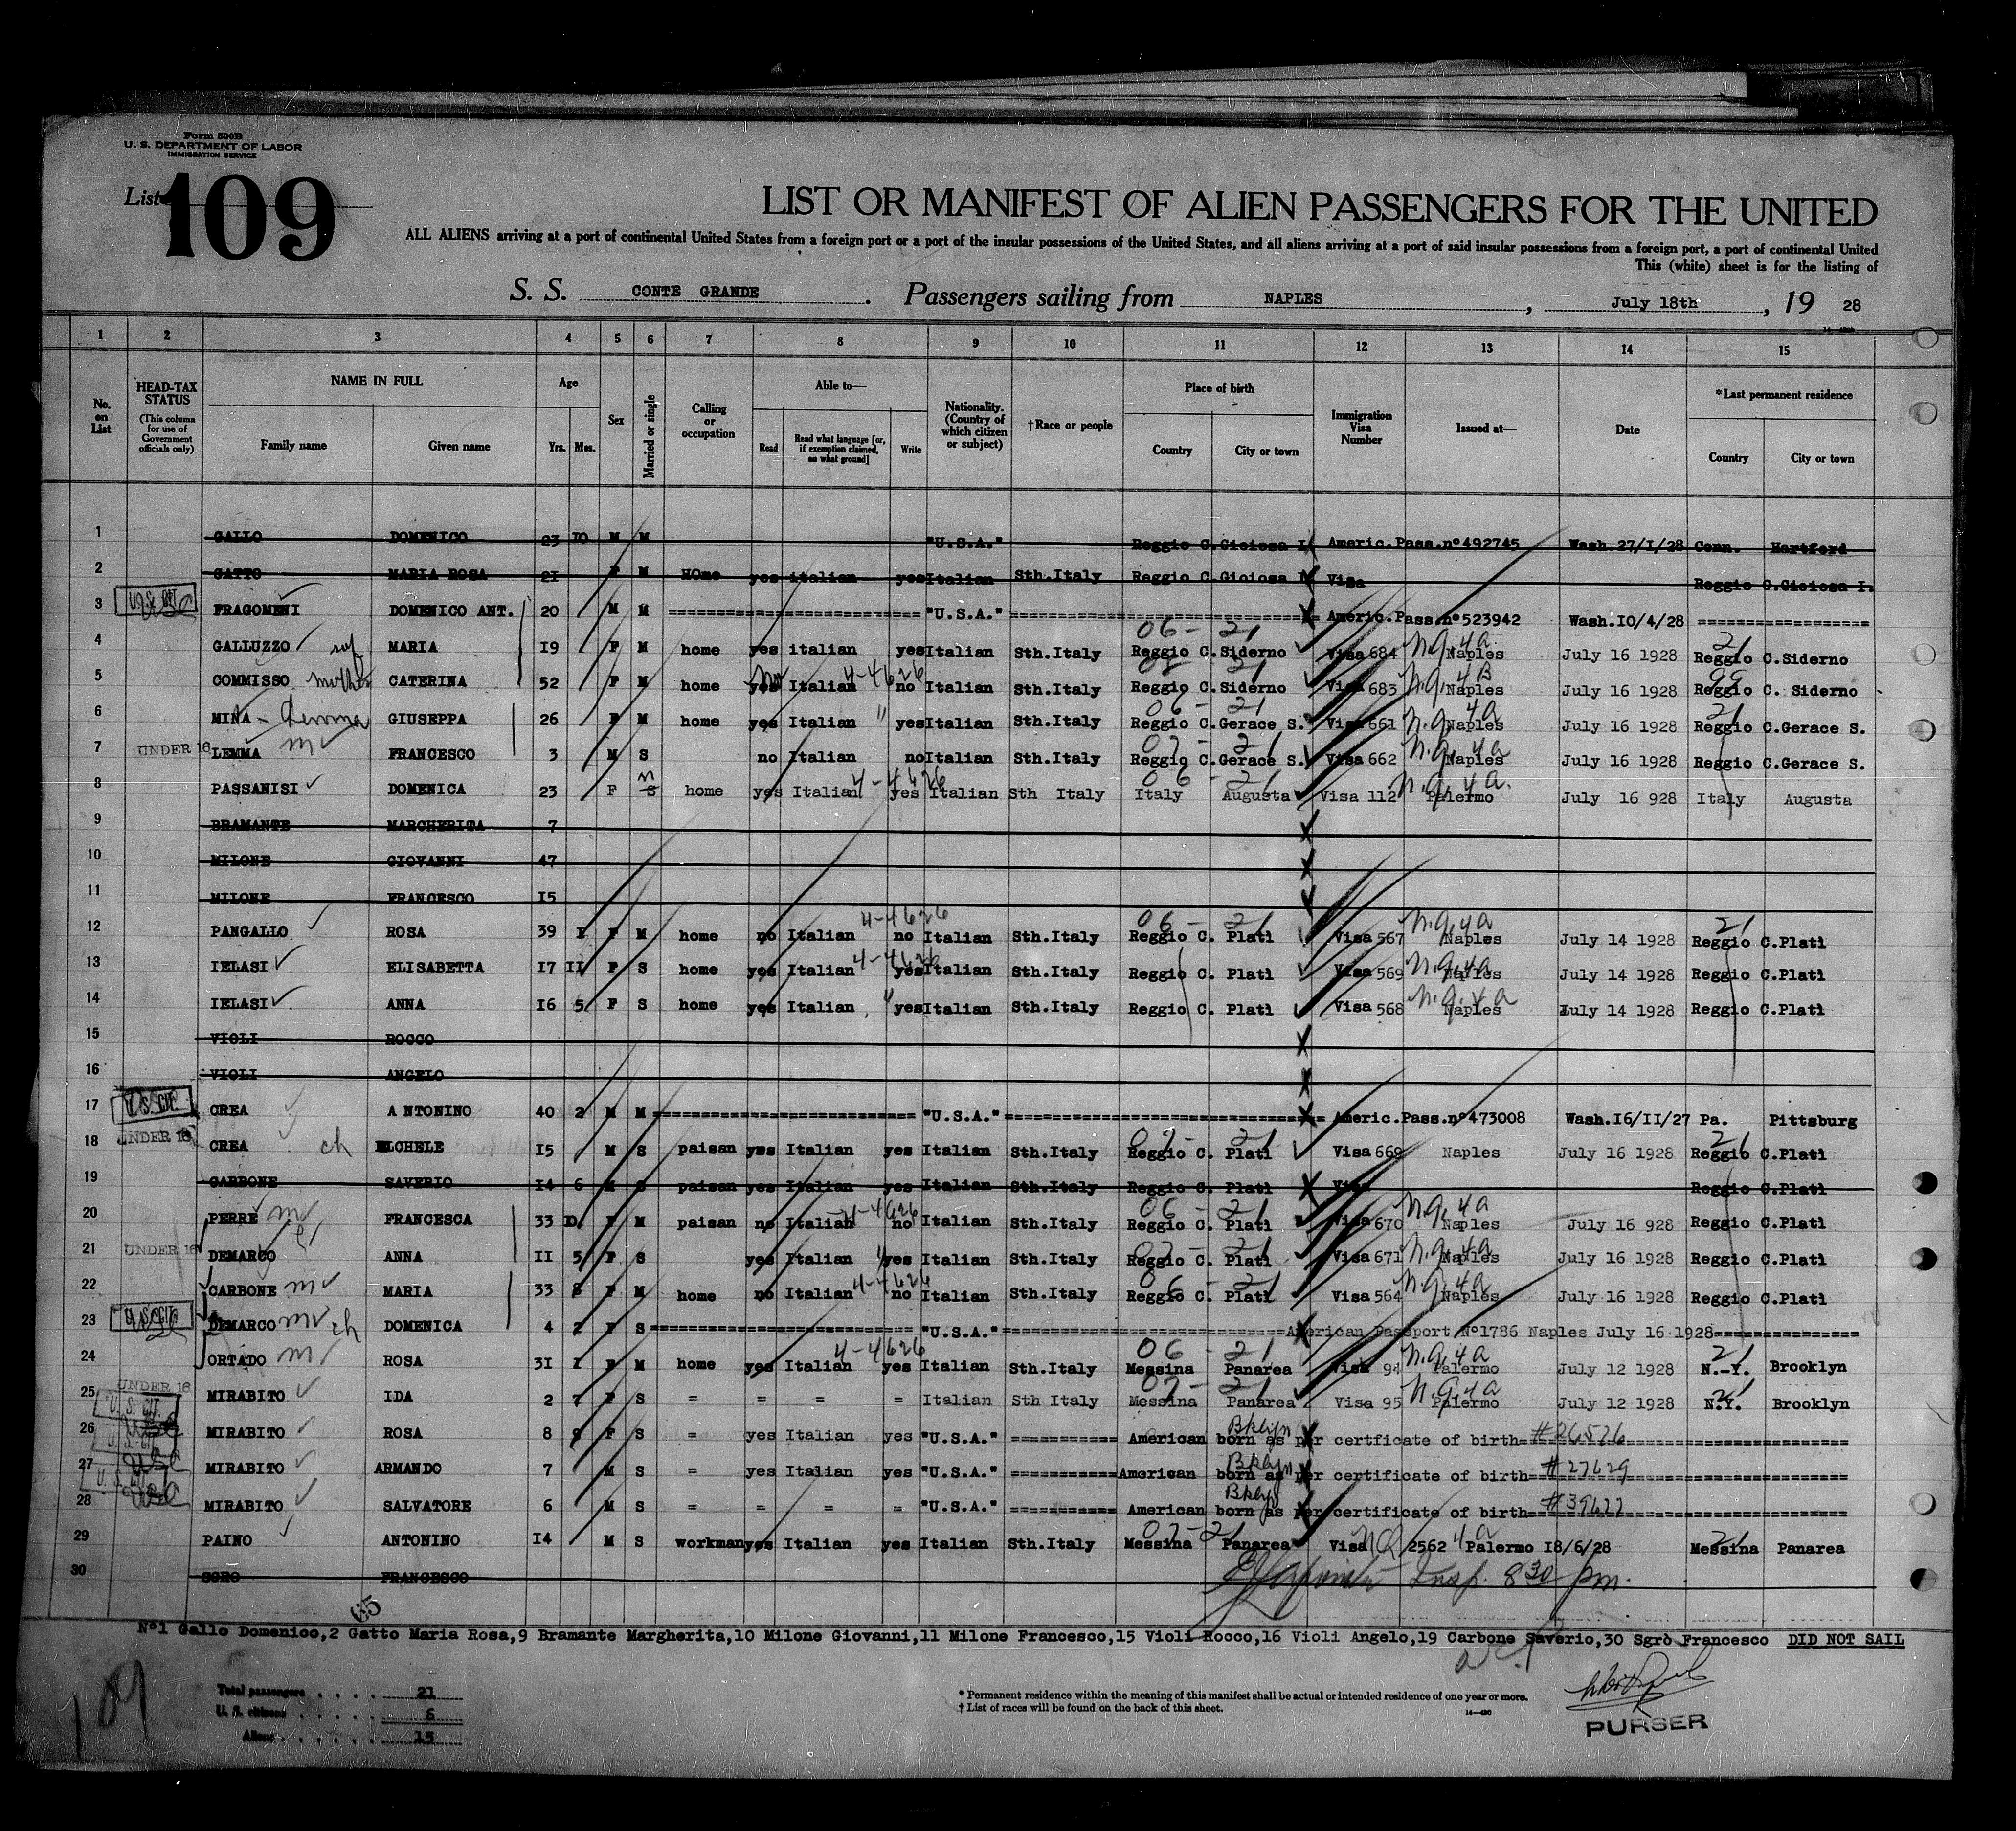 Form 500B
U. S. DEPARTMENT OF LABOR
IMMIGRATION SERVICE
List 109
LIST OR MANIFEST OF ALIEN PASSENGERS FOR THE UNITED
ALL ALIENS arriving at a port of continental United States from a foreign port or a port of the insular possessions of the United States, and all aliens arriving at a port of said insular possessions from a foreign port, a port of continental United
This (white) sheet is for the listing of
S. S. CONTE GRANDE . Passengers sailing from NAPLES , July 18th , 19 28
1 2 3 4 5 6 7 8 9 10 11 12 13 14 15
No. on List
HEAD-TAX STATUS (This column for use of Government officials only)
NAME IN FULL Family name Given name
Age Yrs. Mos.
Sex
Married or single
Calling or occupation
Able to— Read Read what language [or, if exemption claimed, on what ground] Write
Nationality. (Country of which citizen or subject)
†Race or people
Place of birth Country City or town
Immigration Visa Number
Issued at—
Date
*Last permanent residence Country City or town
1 GALLO DOMENICO 23 10 M M "U.S.A." Reggio C.Gioiosa I. Americ.Pass.nº492745 Wash.27/I/28 Conn. Hartford
2 GATTO MARIA ROSA 2I F M HOme yes italian yes Italian Sth.Italy Reggio C.Gioiosa I. Visa Reggio C.Gioiosa I.
3 U.S. CIT. FRAGOMENI DOMENICO ANT. 20 M M "U.S.A." Americ.Pass.nº523942 Wash.IO/4/28
4 GALLUZZO MARIA I9 F M home yes italian yes Italian Sth.Italy 06 - 21 Reggio C.Siderno Visa 684 n.q.4a Naples July 16 1928 21 Reggio C.Siderno
5 COMMISSO mother CATERINA 52 F M home no yes Italian 4-4626 no Italian Sth.Italy Reggio C.Siderno Visa 683 n.q.4B Naples July 16 1928 99 Reggio C. Siderno
6 MINA - Lemma GIUSEPPA 26 F M home yes Italian " yes Italian Sth.Italy 06 - 21 Reggio C.Gerace S. Visa 661 n.q.4a Naples July 16 1928 21 Reggio C.Gerace S.
7 UNDER 16 LEMMA m FRANCESCO 3 M S no Italian no Italian Sth.Italy 07 - 21 Reggio C.Gerace S. Visa 662 n.q.4a Naples July 16 1928 Reggio C.Gerace S.
8 PASSANISI DOMENICA 23 F m S home yes Italian 4-4626 yes Italian Sth Italy 06 - 21 Italy Augusta Visa 112 n.q.4a. Palermo July 16 928 Italy Augusta
9 BRAMANTE MARGHERITA 7
10 MILONE GIOVANNI 47
11 MILONE FRANCESCO I5
12 PANGALLO ROSA 39 I F M home no Italian 4-4626 no Italian Sth.Italy 06 - 21 Reggio C. Platì Visa 567 n.q.4a Naples July 14 1928 21 Reggio C.Platì
13 IELASI ELISABETTA I7 II F S home yes Italian 4-4626 yes Italian Sth.Italy Reggio C. Platì Visa 569 n.q.4a Naples July 14 1928 Reggio C.Platì
14 IELASI ANNA I6 5 F S home yes Italian " yes Italian Sth.Italy Reggio C. Platì Visa 568 n.q.4a Naples July 14 1928 Reggio C.Platì
15 VIOLI ROCCO
16 VIOLI ANGELO
17 U.S. CIT. CREA A NTONINO 40 2 M M "U.S.A." Americ.Pass.nº473008 Wash.I6/II/27 Pa. Pittsburg
18 UNDER 16 CREA ch CHELE I5 M S paisan yes Italian yes Italian Sth.Italy 07 - 21 Reggio C. Platì Visa 669 Naples July 16 1928 21 Reggio C.Platì
19 CARBONE SAVERIO I4 6 M S paisan yes Italian yes Italian Sth.Italy Reggio C. Platì Visa Reggio C.Platì
20 PERRE m FRANCESCA 33 F M paisan no Italian 4-4626 no Italian Sth.Italy 06 - 21 Reggio C. Platì Visa 670 n.q.4a Naples July 16 928 Reggio C.Platì
21 UNDER 16 DEMARCO ANNA II 5 F S yes Italian " yes Italian Sth.Italy 07 - 21 Reggio C. Platì Visa 671 n.q.4a Naples July 16 1928 Reggio C.Platì
22 CARBONE m MARIA 33 8 F M home no Italian 4-4626 no Italian Sth.Italy 06 - 21 Reggio C. Platì Visa 564 n.q.4a Naples July 16 1928 Reggio C.Platì
23 U.S. CIT. DEMARCO m ch DOMENICA 4 7 F S "U.S.A." American Passport Nº1786 Naples July 16 1928
24 ORTADO m ROSA 3I I F M home yes Italian 4-4626 yes Italian Sth.Italy 06 - 21 Messina Panarea Visa 94 n.q.4a Palermo July 12 1928 21 N.-Y. Brooklyn
25 UNDER 16 MIRABITO IDA 2 7 F S = = = = Italian Sth Italy 07 - 21 Messina Panarea Visa 95 n.q.4a Palermo July 12 1928 21 N.Y. Brooklyn
26 U.S. CIT. USC MIRABITO ROSA 8 8 F S = yes Italian yes "U.S.A." American born as per certficate of birth Bklyn #26526
27 U.S. CIT. USC MIRABITO ARMANDO 7 M S = yes Italian yes "U.S.A." American born as per certificate of birth Bklyn #27629
28 U.S. CIT. USC MIRABITO SALVATORE 6 M S = = = = "U.S.A." American born as per certificate of birth Bklyn #39622
29 PAINO ANTONINO I4 M S workman yes Italian yes Italian Sth.Italy 07-21 Messina Panarea Visa nq 2562 4a Palermo I8/6/28 21 Messina Panarea
30 SGRO FRANCESCO Insp. 8 30 pm.
65
Nº1 Gallo Domenico,2 Gatto Maria Rosa,9 Bramante Margherita,10 Milone Giovanni,11 Milone Francesco,15 Violi Rocco,16 Violi Angelo,19 Carbone Saverio,30 Sgrò Francesco DID NOT SAIL
109
Total passengers . . . . 21
U. S. citizens . . . . . 6
Aliens . . . . . . 15
* Permanent residence within the meaning of this manifest shall be actual or intended residence of one year or more.
† List of races will be found on the back of this sheet.
PURSER